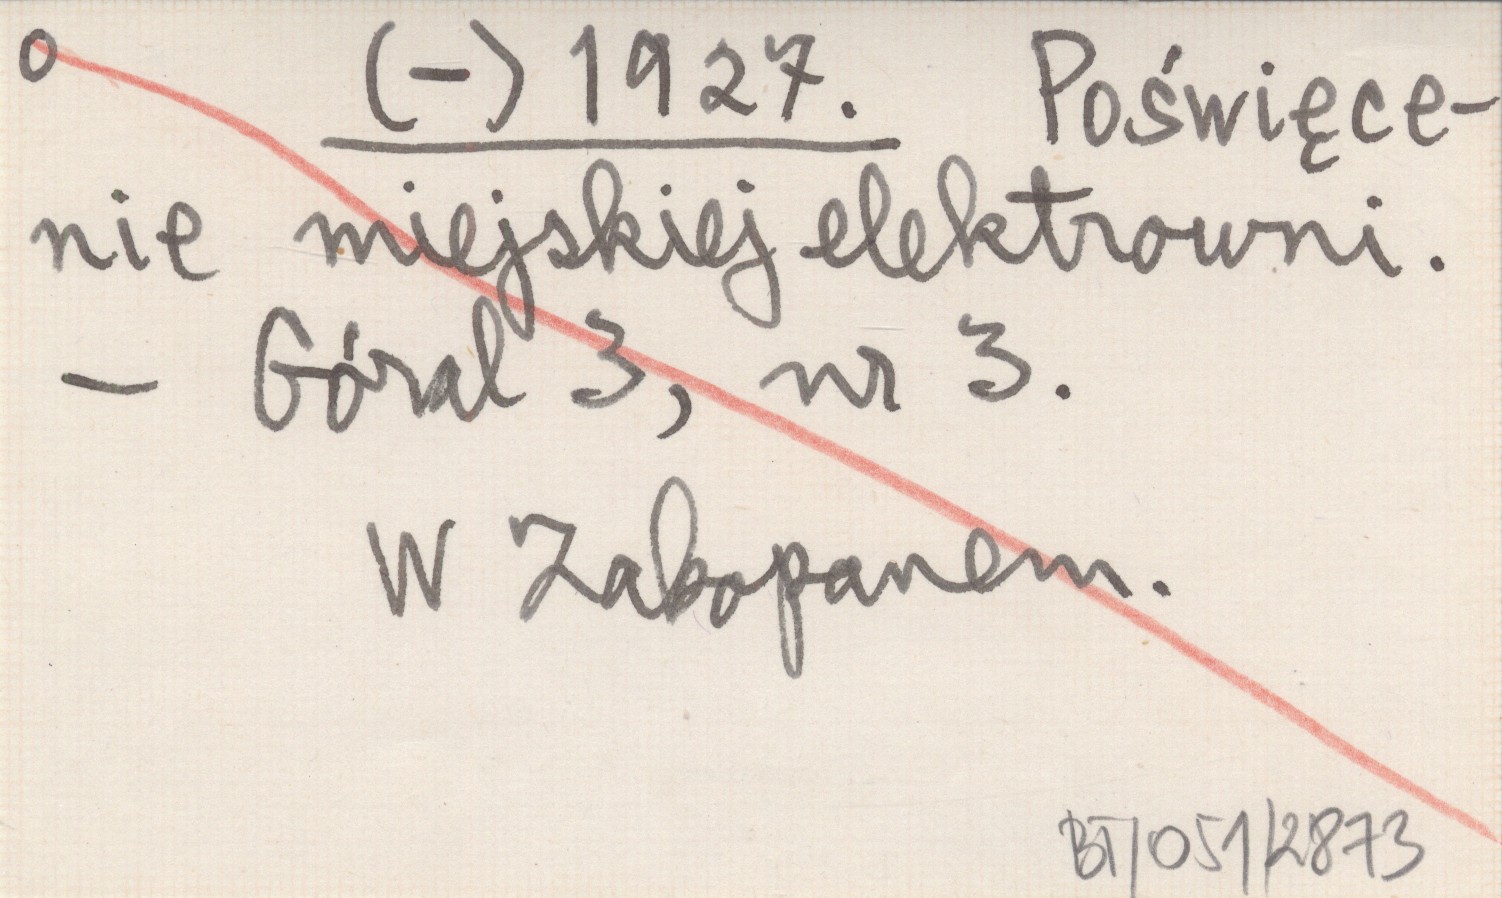 o (-) 1927. Poświęce-
nie miejskiej elektrowni.
— Góral 3, nr 3.
W Zakopanem.
BT/051/2873